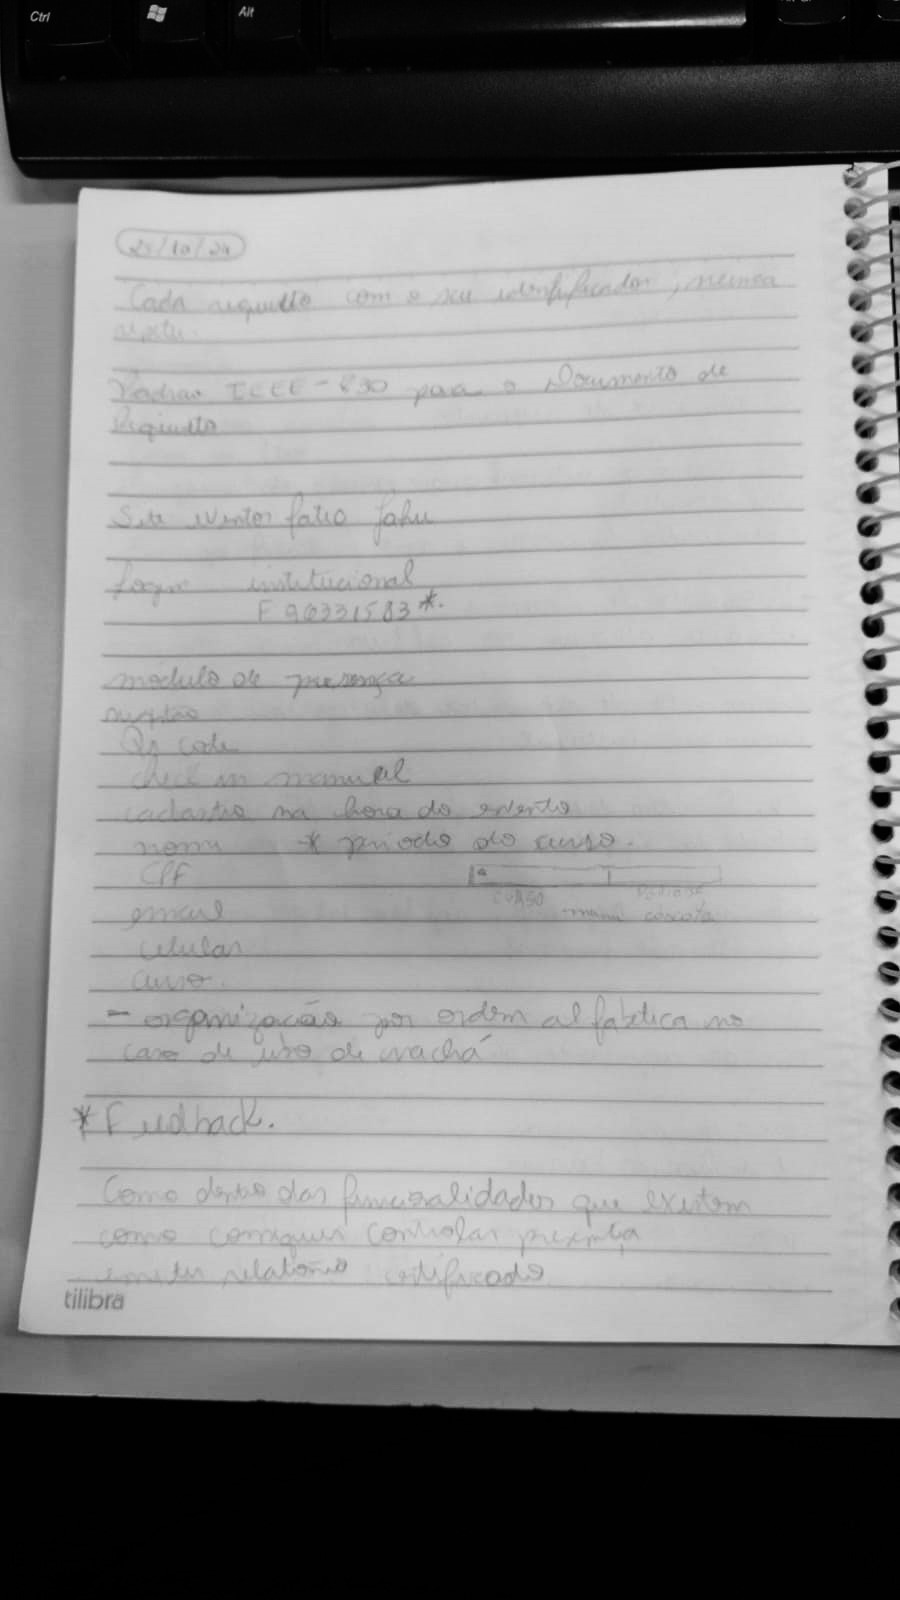 Ctrl Alt
25/10/24
Cada requisito com o seu identificador, nunca
repetir.
Padrao IEEE-830 para o Documento de
Requisito
Site eventos fatec Jahu
Login institucional
F96331583*.
módulo de presença
Qr code
check in manual
cadastro na hora do evento
nome * período do curso.
CPF
CURSO
email
celular
curso.
- organização por ordem alfabética no
caso de uso de crachá
* Feedback.
Como dentro das funcionalidades que existem
como conseguir controlar presença
emitir relatório certificado
tilibra